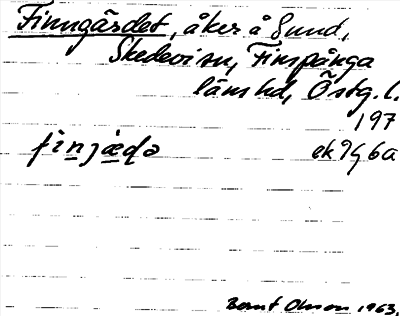 Finngärdet, åker å Sund,
Skedevi sn, Finspånga
läns hd, Östg. l.
197
fìnjæ̀də ek 9G 6a
Bernt Olsson 1963.